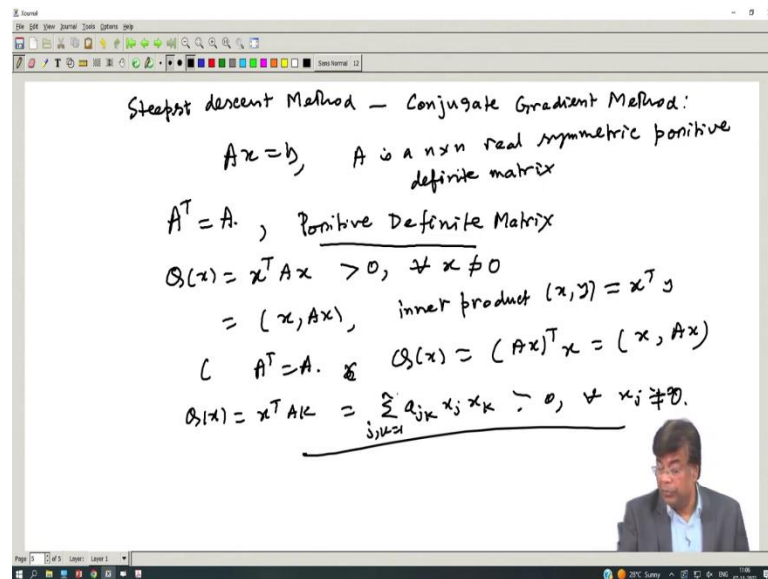 Xournal
File Edit View Journal Tools Options Help
Sans Normal 12
Steepst descent Method – Conjugate Gradient Method:
Ax = b, A is a n×n real symmetric positive
definite matrix
A^T = A. , Positive Definite Matrix
Q(x) = x^T Ax > 0, ∀ x ≠ 0
= (x, Ax), inner product (x, y) = x^T y
( A^T = A. & Q(x) = (Ax)^T x = (x, Ax)
Q(x) = x^T AX = Σ_{j,k=1}^{n} a_{jk} x_j x_k > 0, ∀ x_j ≠ 0.
Page 5 of 5 Layer: Layer 1
29°C Sunny ENG 11:06